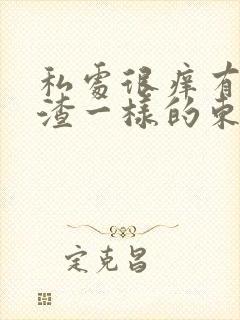 私處很痒有
渣一樣的東
定克昌